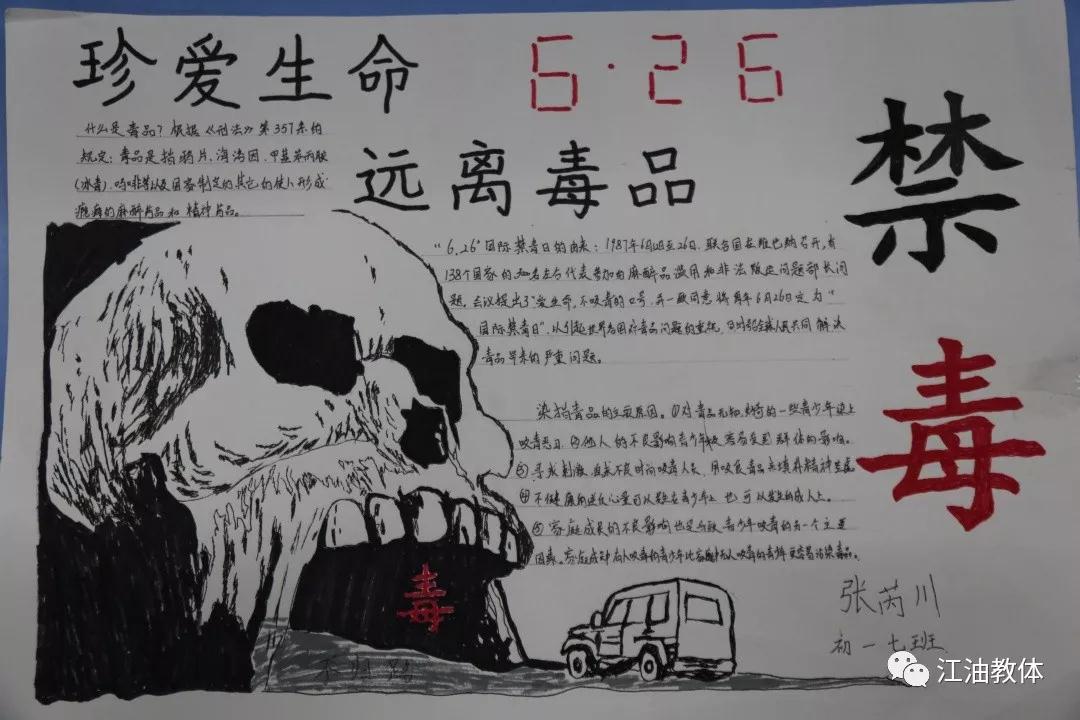 珍爱生命
6·26
什么是毒品？根据《刑法》第357条的
规定：毒品是指鸦片，海洛因，甲基苯丙胺
(冰毒)，吗啡等以及国家制定的其它的使人形成
瘾癖的麻醉药品和精神药品。
远离毒品
禁毒
"6.26"国际禁毒日的由来：1987年6月至26日，联合国在维也纳召开，有
138个国家的3000名左右代表参加的麻醉品滥用和非法贩运问题部长
题，会议提出了"爱生命，不吸毒的口号，并一致同意将每年6月26日定为"
国际禁毒日"，以引起世界各国对毒品问题的重视，同时号召全球人民共同解决
毒品带来的严重问题。
染指毒品的主要原因。①对毒品无知，好奇的一些青少年染上
吸毒恶习，与他人的不良影响青少年容易受到群体的影响。
③寻求刺激，吸食毒品来填补精神空虚
④不健康的逆反心里可以发生在青少年上也可以发生的成人上。
⑤家庭成员的不良影响也是导致青少年吸毒的另一个主要
因素。家庭成员有人吸毒的青少年比家庭中无人吸毒的青少年更容易沾染毒品。
毒
不归路
张芮川
初一七班
江油教体